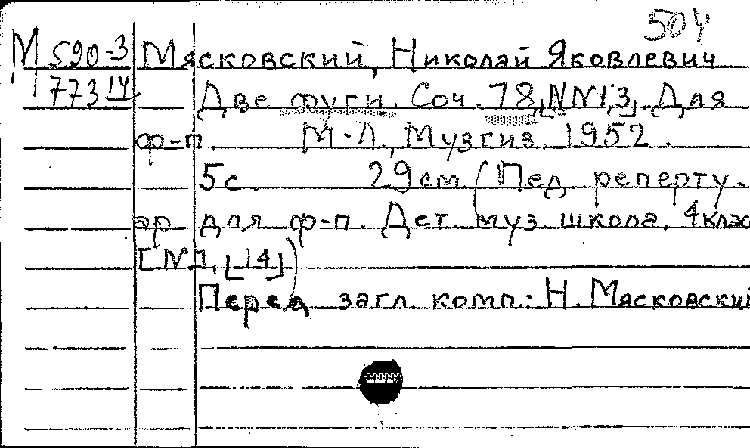 504
М 590-3 Мясковский, Николай Яковлевич
773 14 Две фуги. Соч. 78, NN1,3. Для
ф-п. М-Л, Музгиз 1952.
5с. 29см (Пед. реперту-
ар для ф-п. Дет муз школа. 4 класс
[14])
Перед загл. комп.: Н. Мясковский